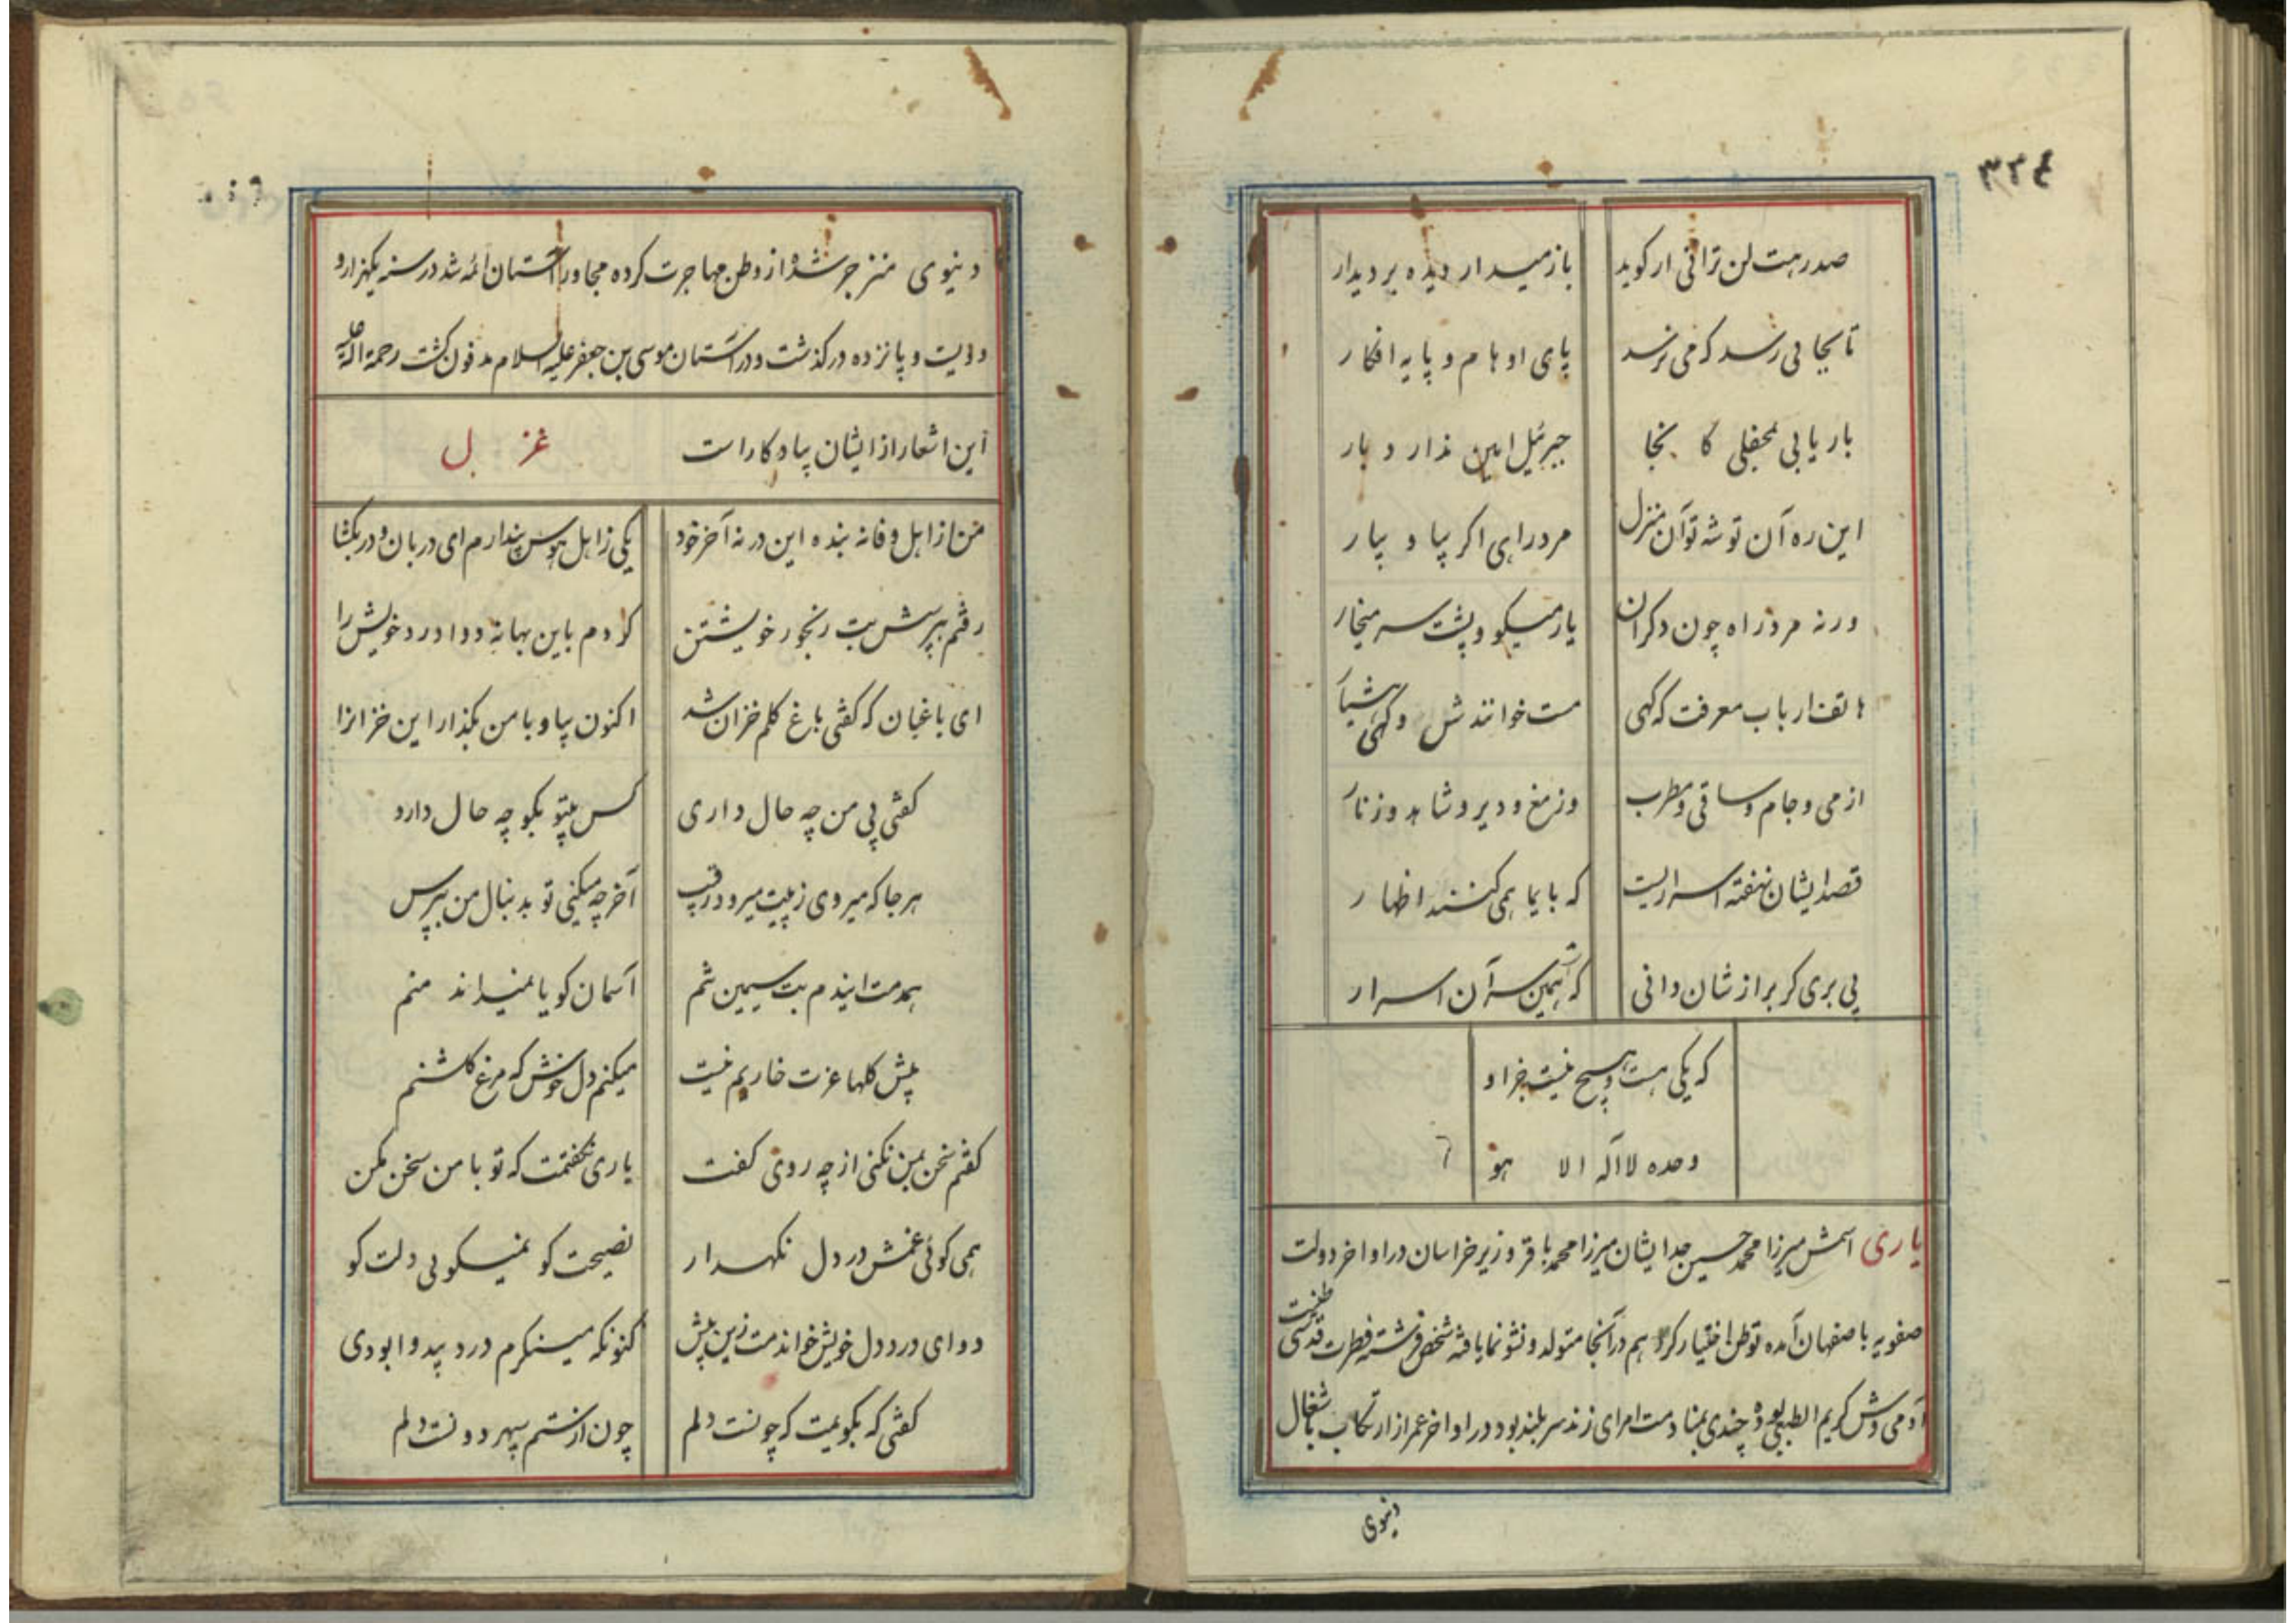 ۳۳٤
صد رهت لن ترانی ار کوید بازمیدار دیده بر دیدار
تا بجایی رسد که می نرسد پای اوهام و پایه افکار
بار یابی بمحفلی کانجا جبرئیل امین ندارد بار
این ره آن توشه تو آن منزل مرد راهی اکر بیا و بیار
ورنه مرد راه چون دکران یار میکو و پشت سر میخار
هاتف ارباب معرفت که کهی مست خوانندشان و کهی هشیار
از می و جام و ساقی و مطرب وز مغ و دیر و شاهد و زنار
قصد ایشان نهفته اسراریست که بایما همی کنند اظهار
پی بری کر براز شان دانی که همین است سر آن اسرار
که یکی هست و هیچ نیست جز او
وحده لا اله الا هو
یاری اسمش میرزا محمد حسین جد ایشان میرزا محمد باقر وزیر خراسان در اواخر دولت
صفویه باصفهان آمده توطن اختیار کرد هم در آنجا متولد و نشو نما یافته شخص فرشته فطرت قدسی طینت
آدمی وش کریم الطبع بوده چندی بمنادمت امرای زند سر بلند بود در اواخر عمر از ارتکاب باشغال
دنیوی
دنیوی منزجر شده از وطن مهاجرت کرده مجاور آستان ائمه شد در سنه یکهزار و
دویست و پانزده درکذشت و در آستان موسی بن جعفر علیه السلام مدفون کشت رحمة الله علیه
این اشعار از ایشان یادکار است غزل
من از اهل وفا نه بنده این در نه آخر خود یکی ز اهل هوس پندارم ای دربان و در بکشا
رفتم بپرسش بت رنجور خویشتن کردم باین بهانه دوا درد خویش را
ای باغبان که کفتی باغ کلم خزان شد اکنون بیا و با من بکذار این خزانرا
کفتی بی من چه حال داری کس بیتو بکو چه حال دارد
هر جا که میروی ز پیت میرود رقیب آخر چه میکنی تو بدنبال من بپرس
همدمت ایندم بت سیمین تنم آسمان کویا نمیداند منم
پیش کلها عزت خاریم نیست میکنم دل خوش که مرغ کلشنم
کفتم سخن بمن نکنی از چه روی کفت یاری نکفتمت که تو با من سخن مکن
همی کوئی غمش در دل نکهدار نصیحت کو نمیکویی دلت کو
دوای درد دل خویش خواندمت زین پیش کنونکه مینکرم درد بیدوا بودی
کفتی که بکویمت که چونست دلم چون از ستم سپهر دونست دلم